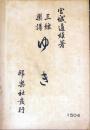 宮城道雄著
三絃楽譜
ゆき
邦楽社発行
1504